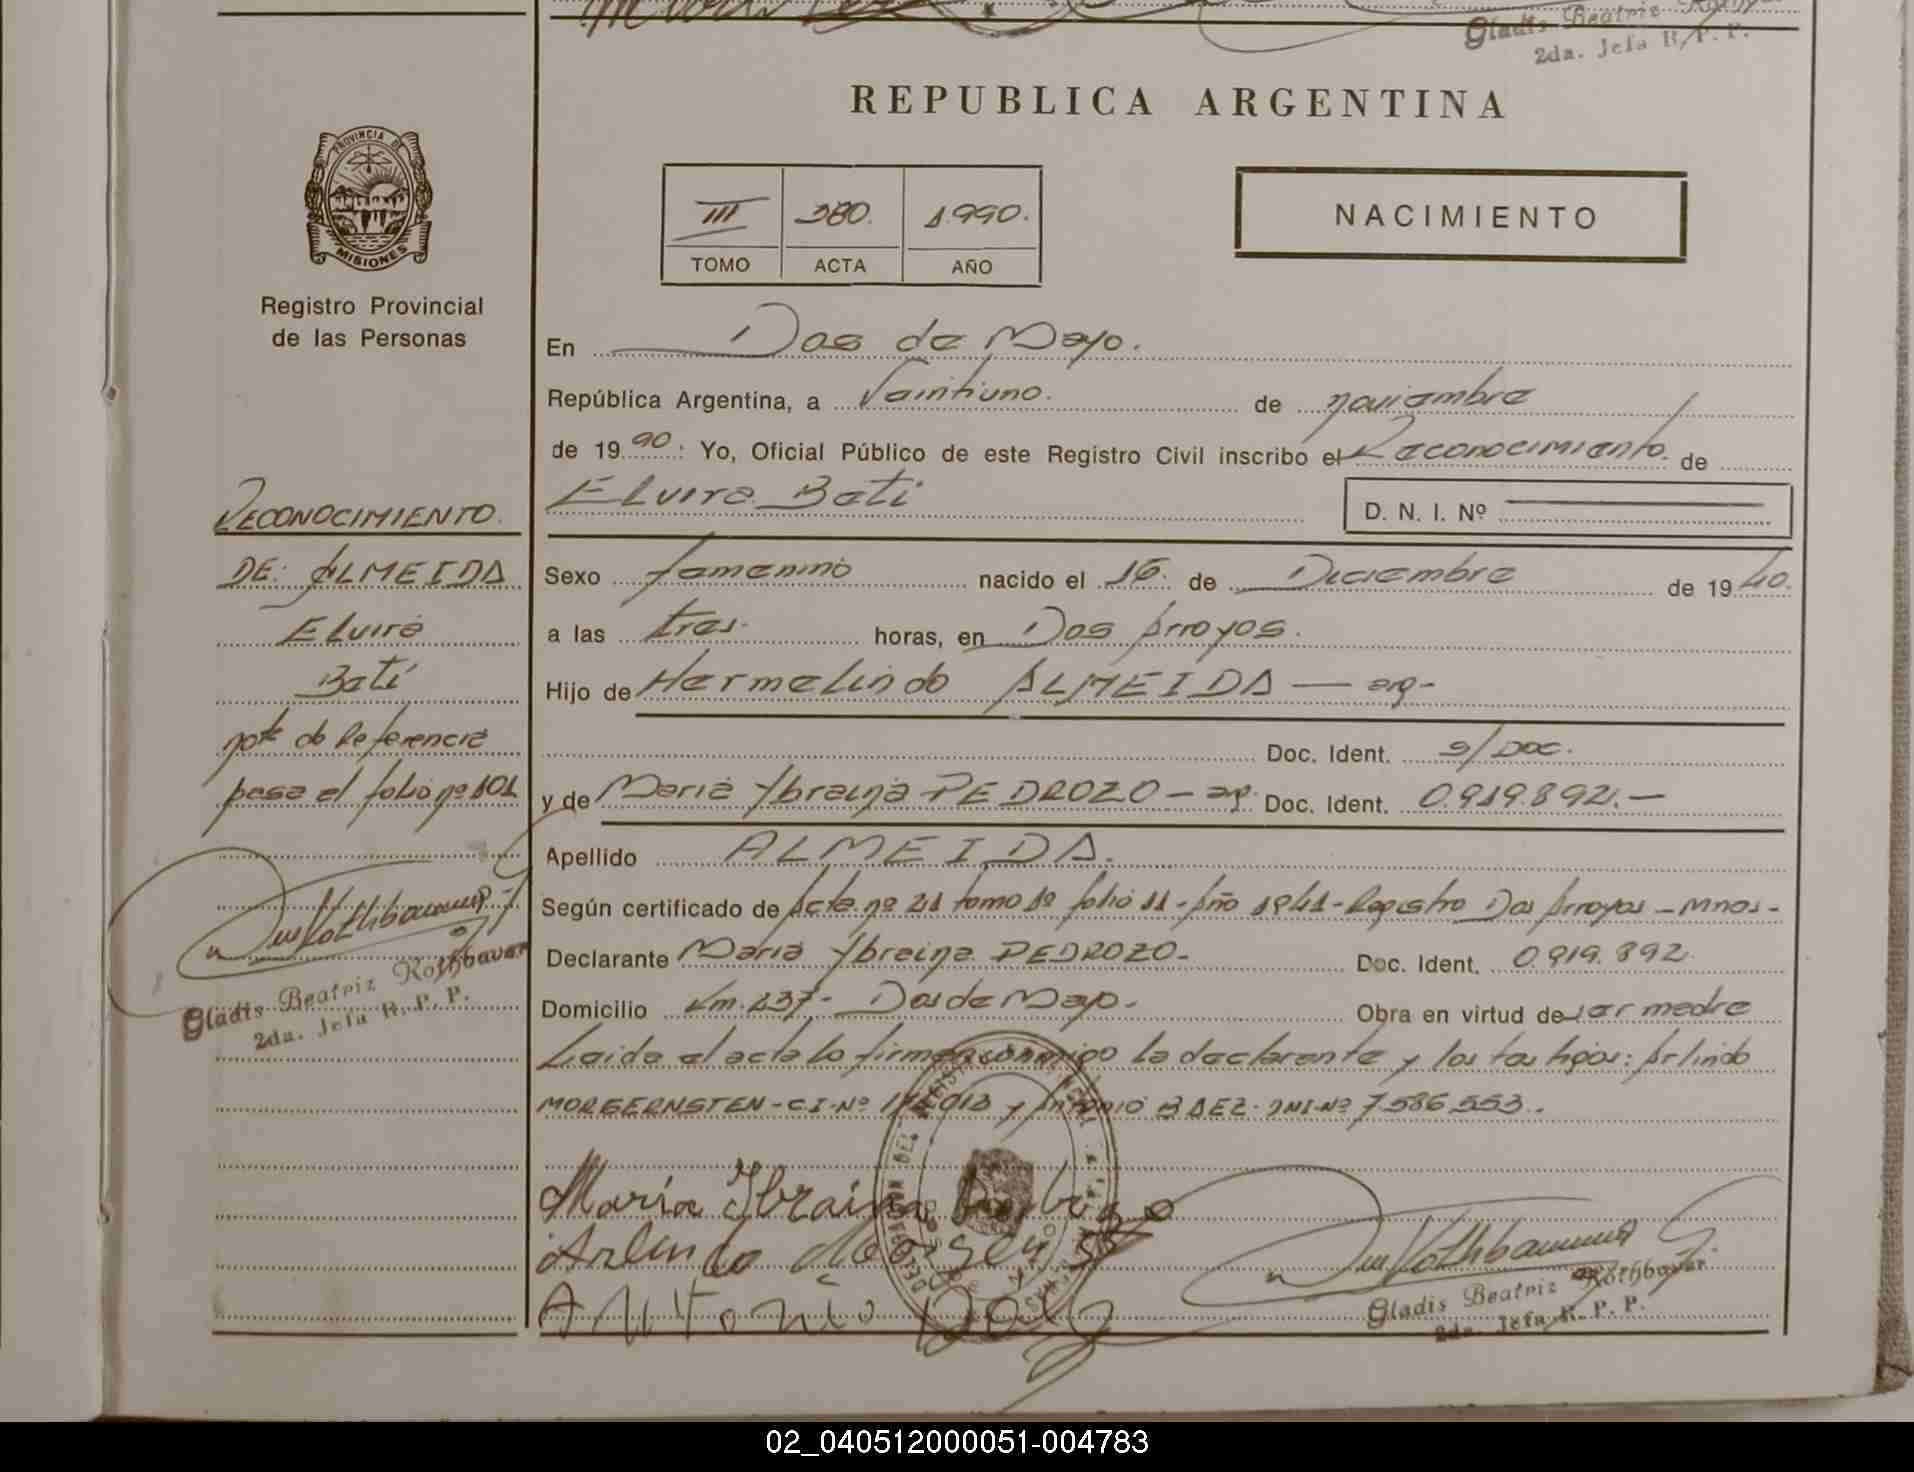 Gladis Beatriz
2da. Jefa R. P. P.
REPUBLICA ARGENTINA
PROVINCIA DE
MISIONES
Registro Provincial
de las Personas
III 380. 1.990.
TOMO ACTA AÑO
NACIMIENTO
En Dos de Mayo.
República Argentina, a Veintiuno. de noviembre
de 19 90 : Yo, Oficial Público de este Registro Civil inscribo el Reconocimiento. de
Elvira Bati
D. N. I. Nº
Sexo femenino nacido el 16. de Diciembre de 19 40.
a las tres. horas, en Dos Arroyos.
Hijo de Hermelindo ALMEIDA — arg-
Doc. Ident. s/Doc.
y de Maria Ybraina PEDROZO - arg. Doc. Ident. 0.919.892.-
Apellido ALMEIDA.
Según certificado de Acta nº 21 tomo 1º folio 11 - Año 1941 - Registro Dos Arroyos - Mnes-
Declarante Maria Ybraina PEDROZO- Doc. Ident. 0.919.892
Domicilio Km. 237- Dos de Mayo. Obra en virtud de ser madre
Leida el acta lo firman conmigo la declarante y los testigos: Arlindo
MORGERNSTEN - C.I. Nº y Antonio BAEZ - DNI-Nº 7.586.553.
María Ybraina
Arlindo
Antonio
Gladis Beatriz Rothbauer
2da. Jefa R. P. P.
RECONOCIMIENTO.
DE: ALMEIDA
Elvira
Bati
nota de Referencia
pasa al folio nº 101
Gladis Beatriz Rothbauer
2da. Jefa R. P. P.
02_040512000051-004783